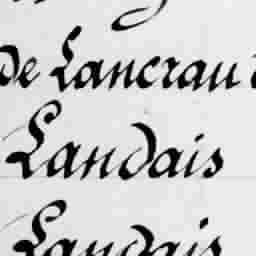 de Lancrau
Landais
Landais